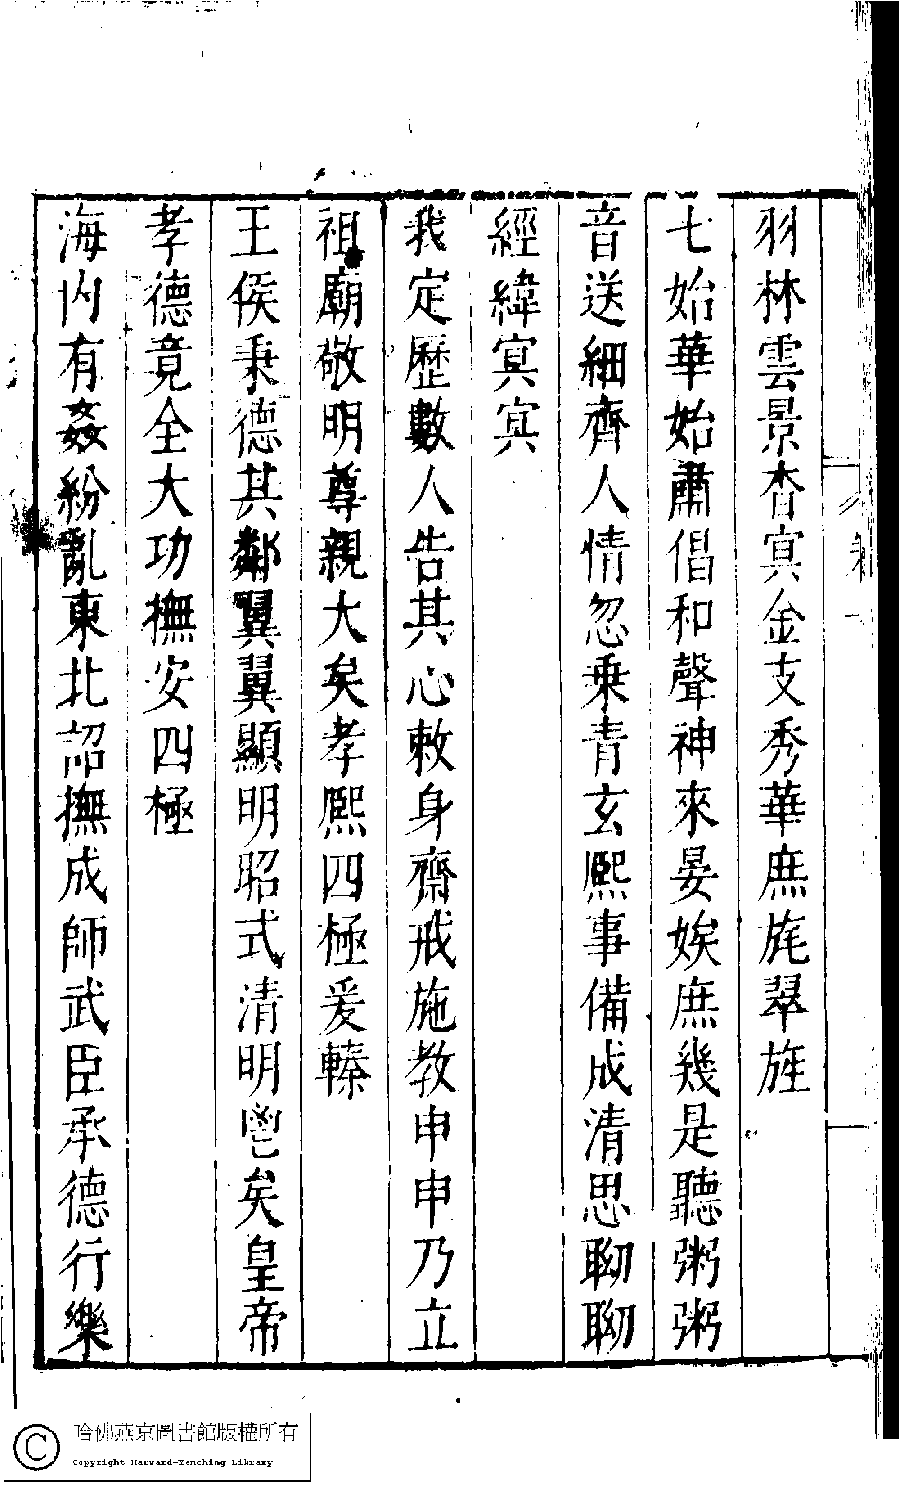 羽林雲景杳冥金支秀華庶旄翠旌
七始華始肅倡和聲神來晏娭庶幾是聽粥粥
音送細齊人情忽乗青玄熈事備成清思聭聭
經緯冥冥
我定歷數人告其心敕身齋戒施教申申乃立
祖廟敬明尊親大矣孝熈四極爰轃
王侯秉德其鄰翼翼顯明昭式清明鬯矣皇帝
孝德竟全大功撫安四極
海内有姦紛亂東北詔撫成師武臣承德行樂
哈佛燕京圖書館版權所有
Copyright Harvard-Yenching Library